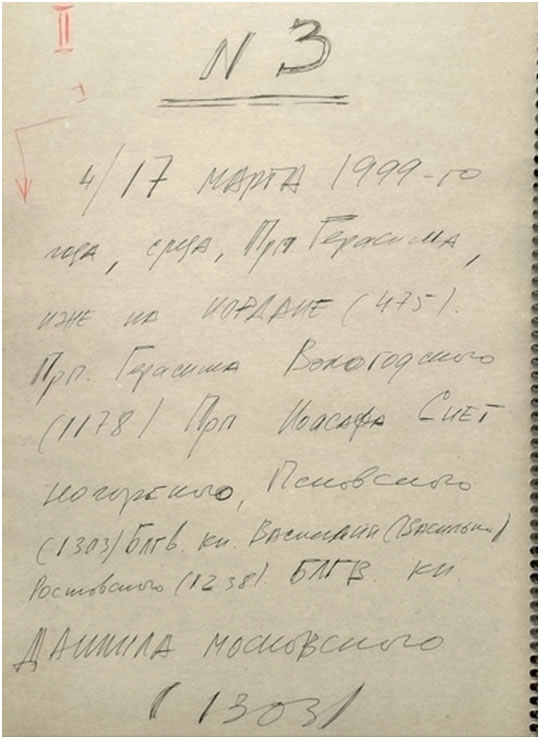 II
N 3
1
4/17 марта 1999-го
года, среда, Прп Герасима,
иже на Иордане (475).
Прп. Герасима Вологодского
(1178) Прп Иоасафа Снет
ногорского, Псковского
(1303) Блгв. кн. Василия (Василько)
Ростовского (1238). БЛГВ. кн.
Даниила московского
(1303)